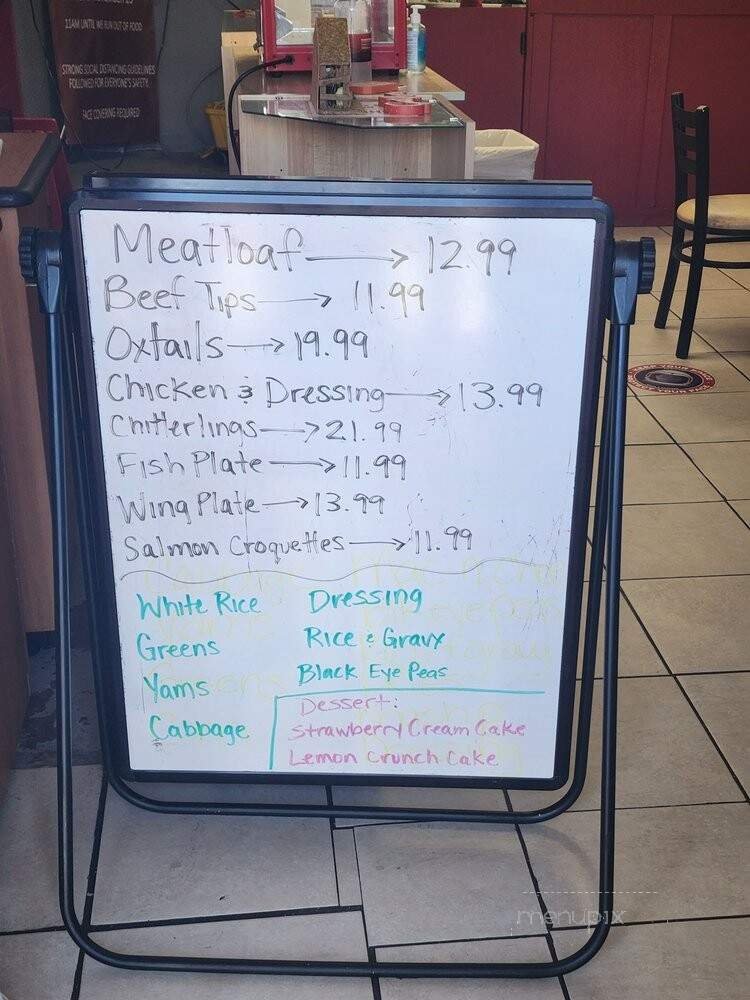 11AM UNTIL WE RUN OUT OF FOOD
STRONG SOCIAL DISTANCING GUIDELINES
FOLLOWED FOR EVERYONE'S SAFETY
FACE COVERING REQUIRED
Meatloaf → 12.99
Beef Tips → 11.99
Oxtails → 19.99
Chicken & Dressing → 13.99
Chitterlings → 21.99
Fish Plate → 11.99
Wing Plate → 13.99
Salmon Croquettes → 11.99
White Rice
Greens
Yams
Cabbage
Dressing
Rice & Gravy
Black Eye Peas
Dessert:
Strawberry Cream Cake
Lemon Crunch Cake
menupix